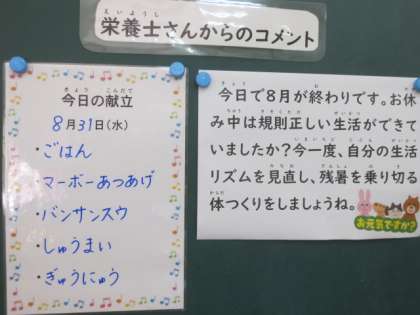 えいようし
栄養士さんからのコメント
きょう こんだて
今日の献立
8月31日(水)
・ごはん
・マーボーあつあげ
・バンサンスウ
・しゅうまい
・ぎゅうにゅう
今日で8月が終わりです。お休
み中は規則正しい生活ができて
いましたか?今一度、自分の生活
リズムを見直し、残暑を乗り切る
体つくりをしましょうね。
お元気ですか?